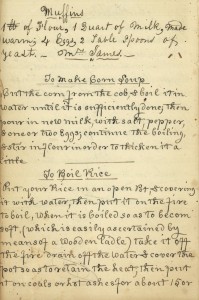 Muffins
1 lb of Flour, 1 Quart of Milk, made
warm, 4 Eggs, 2 Table Spoons of
yeast. — Mrs James —
To Make Corn Soup
Cut the corn from the cob, & boil it in
water until it is sufficiently done; then
pour in new milk, with salt, pepper,
& one or two Eggs; continue the boiling,
& stir in flour in order to thicken it a
little.
To Boil Rice
Put your Rice in an open Pot, & covering
it with water, then put it on the fire
to boil, when it is boiled so as to become
soft, (which is easily ascertained by
means of a Wooden ladle) take it off
the fire drain off the water & cover the
pot so as to retain the heat, then put
it on coals or hot ashes for about 15 or